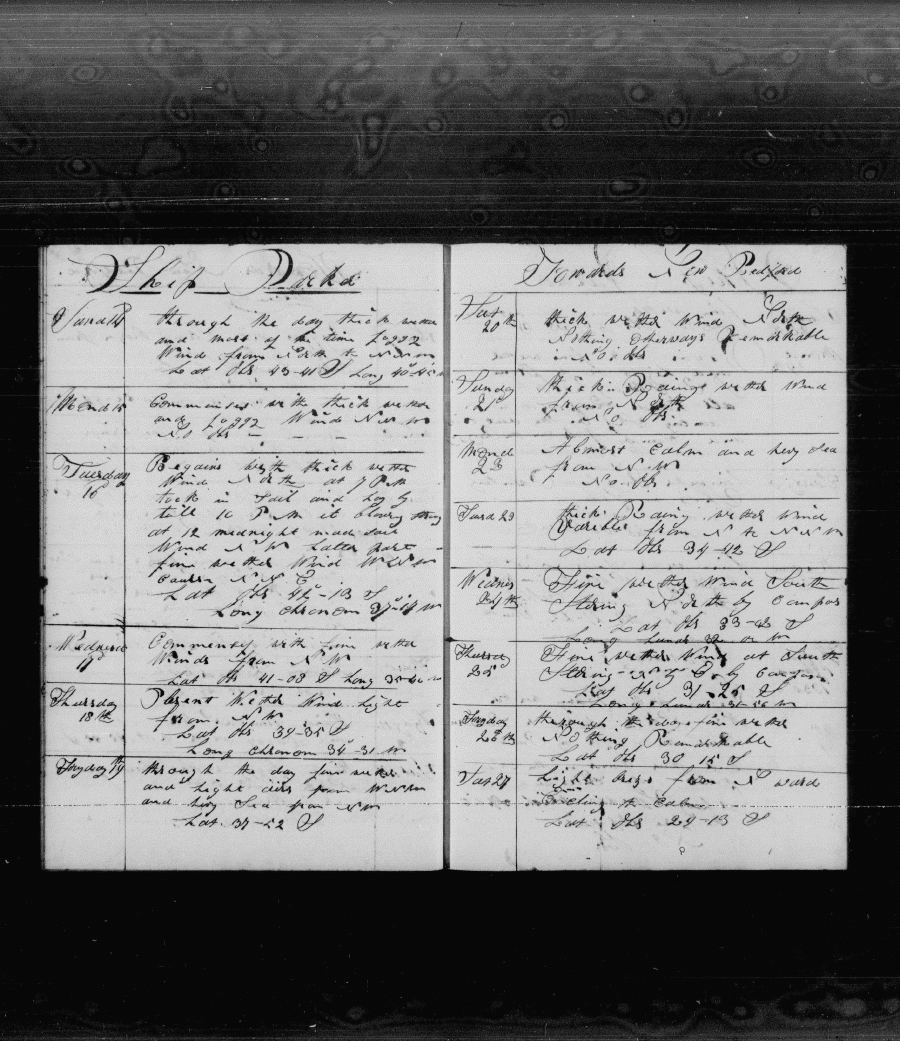 Ship Parka
Sund 14
through the day thick wether
and most of the time Foggy
Wind from North to N N W
Lat Obs 43-41 S Long 40-40 W
Mond 15
Commenses with thick wether
and Foggy Wind N N W
No Obs
Tuesday
16
Begains with thick wether
Wind North at 7 P M
tock in Sail and Lay by
till 10 P M it blowing strong
at 12 midnight made Sail
Wind N W Latter part
fine wether Wind W S W
Course N N E
Lat Obs 42-13 S
Long Chronom 37-14 W
Wednesd
17
Commenses with fine wether
Winds from N W
Lat Obs 41-08 S Long 35-40 W
Thursday
18th
Plesent Wether Wind Light
from N W
Lat Obs 39-35 S
Long Chronom 34-31 W
Fryday 19th
through the day fine wether
and Light airs from W N W
and hevy Sea from N W
Lat 37-52 S
Towards New Bedford
Sat
20th
thick wether Wind North
Nothing otherways Remarkable
No Obs
Sunday
21
thick Rainy wether Wind
from North
No Obs
Mond
Almost Calm and hevy Sea
from N W
No Obs
Tusd 23
thick Rainy wether Wind
Varible from N to N N W
Lat Obs 34-42 S
Wednes
24th
Fine wether Wind South
Stering North by Compas
Lat Obs 33-43 S
Long Lunar W
Thursd
25
Fine wether Wind at South
Stering N by E by Compas
Lat Obs 31-25 S
Long Lunar 31-56 W
Fryday
26th
through the day fine wether
Nothing Remarkable
Lat Obs 30 15 S
Sat 27
Light Airs from N ward
to Calm
Lat Obs 29-13 S